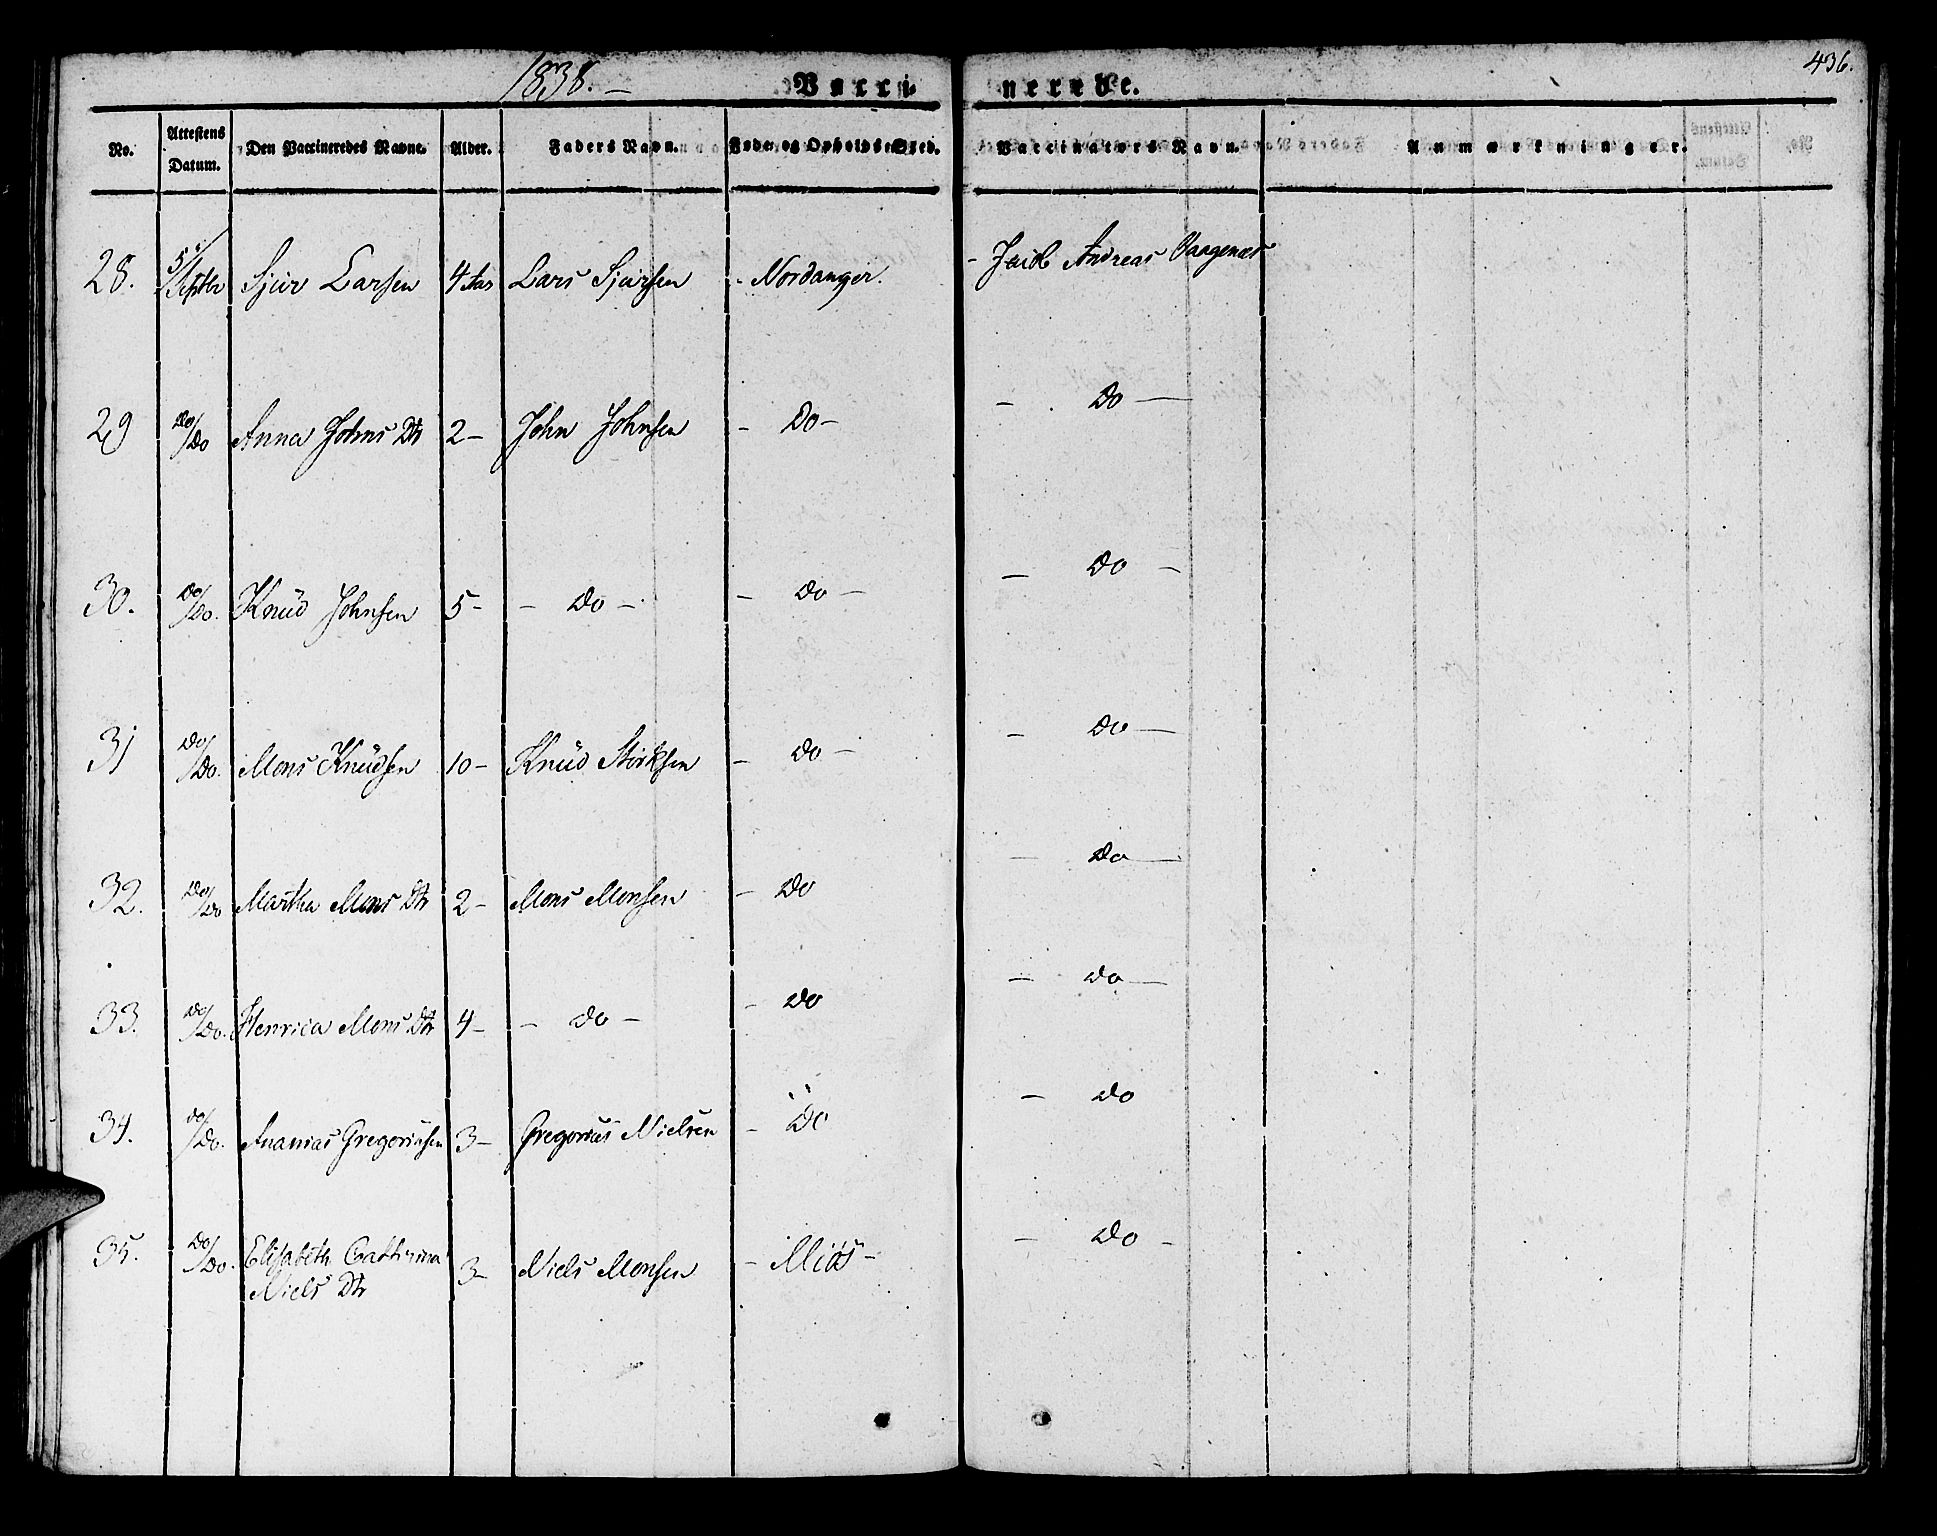 1838. –
Vacci nerede.
436.
No. Attestens Datum. Den Vaccineredes Navne. Alder. Faders Navn. Føde- og Opholds-Sted. Vaccinateurs Navn. Anmærkninger.
28. 5/Septbr Sjur Larsen 4 Aar Lars Sjursen - Nordanger. - Jacob Andreas
29 Do/Do Anna Johns Dtr 2 – John Johnsen – Do – – Do –
30. Do/Do. Knud Johnsen 5 – – Do – – Do – – Do –
31 Do/Do. Mons Knudsen 10 – Knud Størksen – Do – – Do –
32. Do/Do Martha Mons Dtr 2 – Mons Monsen – Do – Do –
33. Do/Do. Henrica Mons Dtr 4 – – Do – – Do – Do –
34. Do/Do. Ananias Gregoriusen 3 – Gregorius Nielsen – Do – Do
35. Do/Do. Elisabeth Cathrina
Niels Dtr 3 – Niels Monsen – Miøs – – Do –